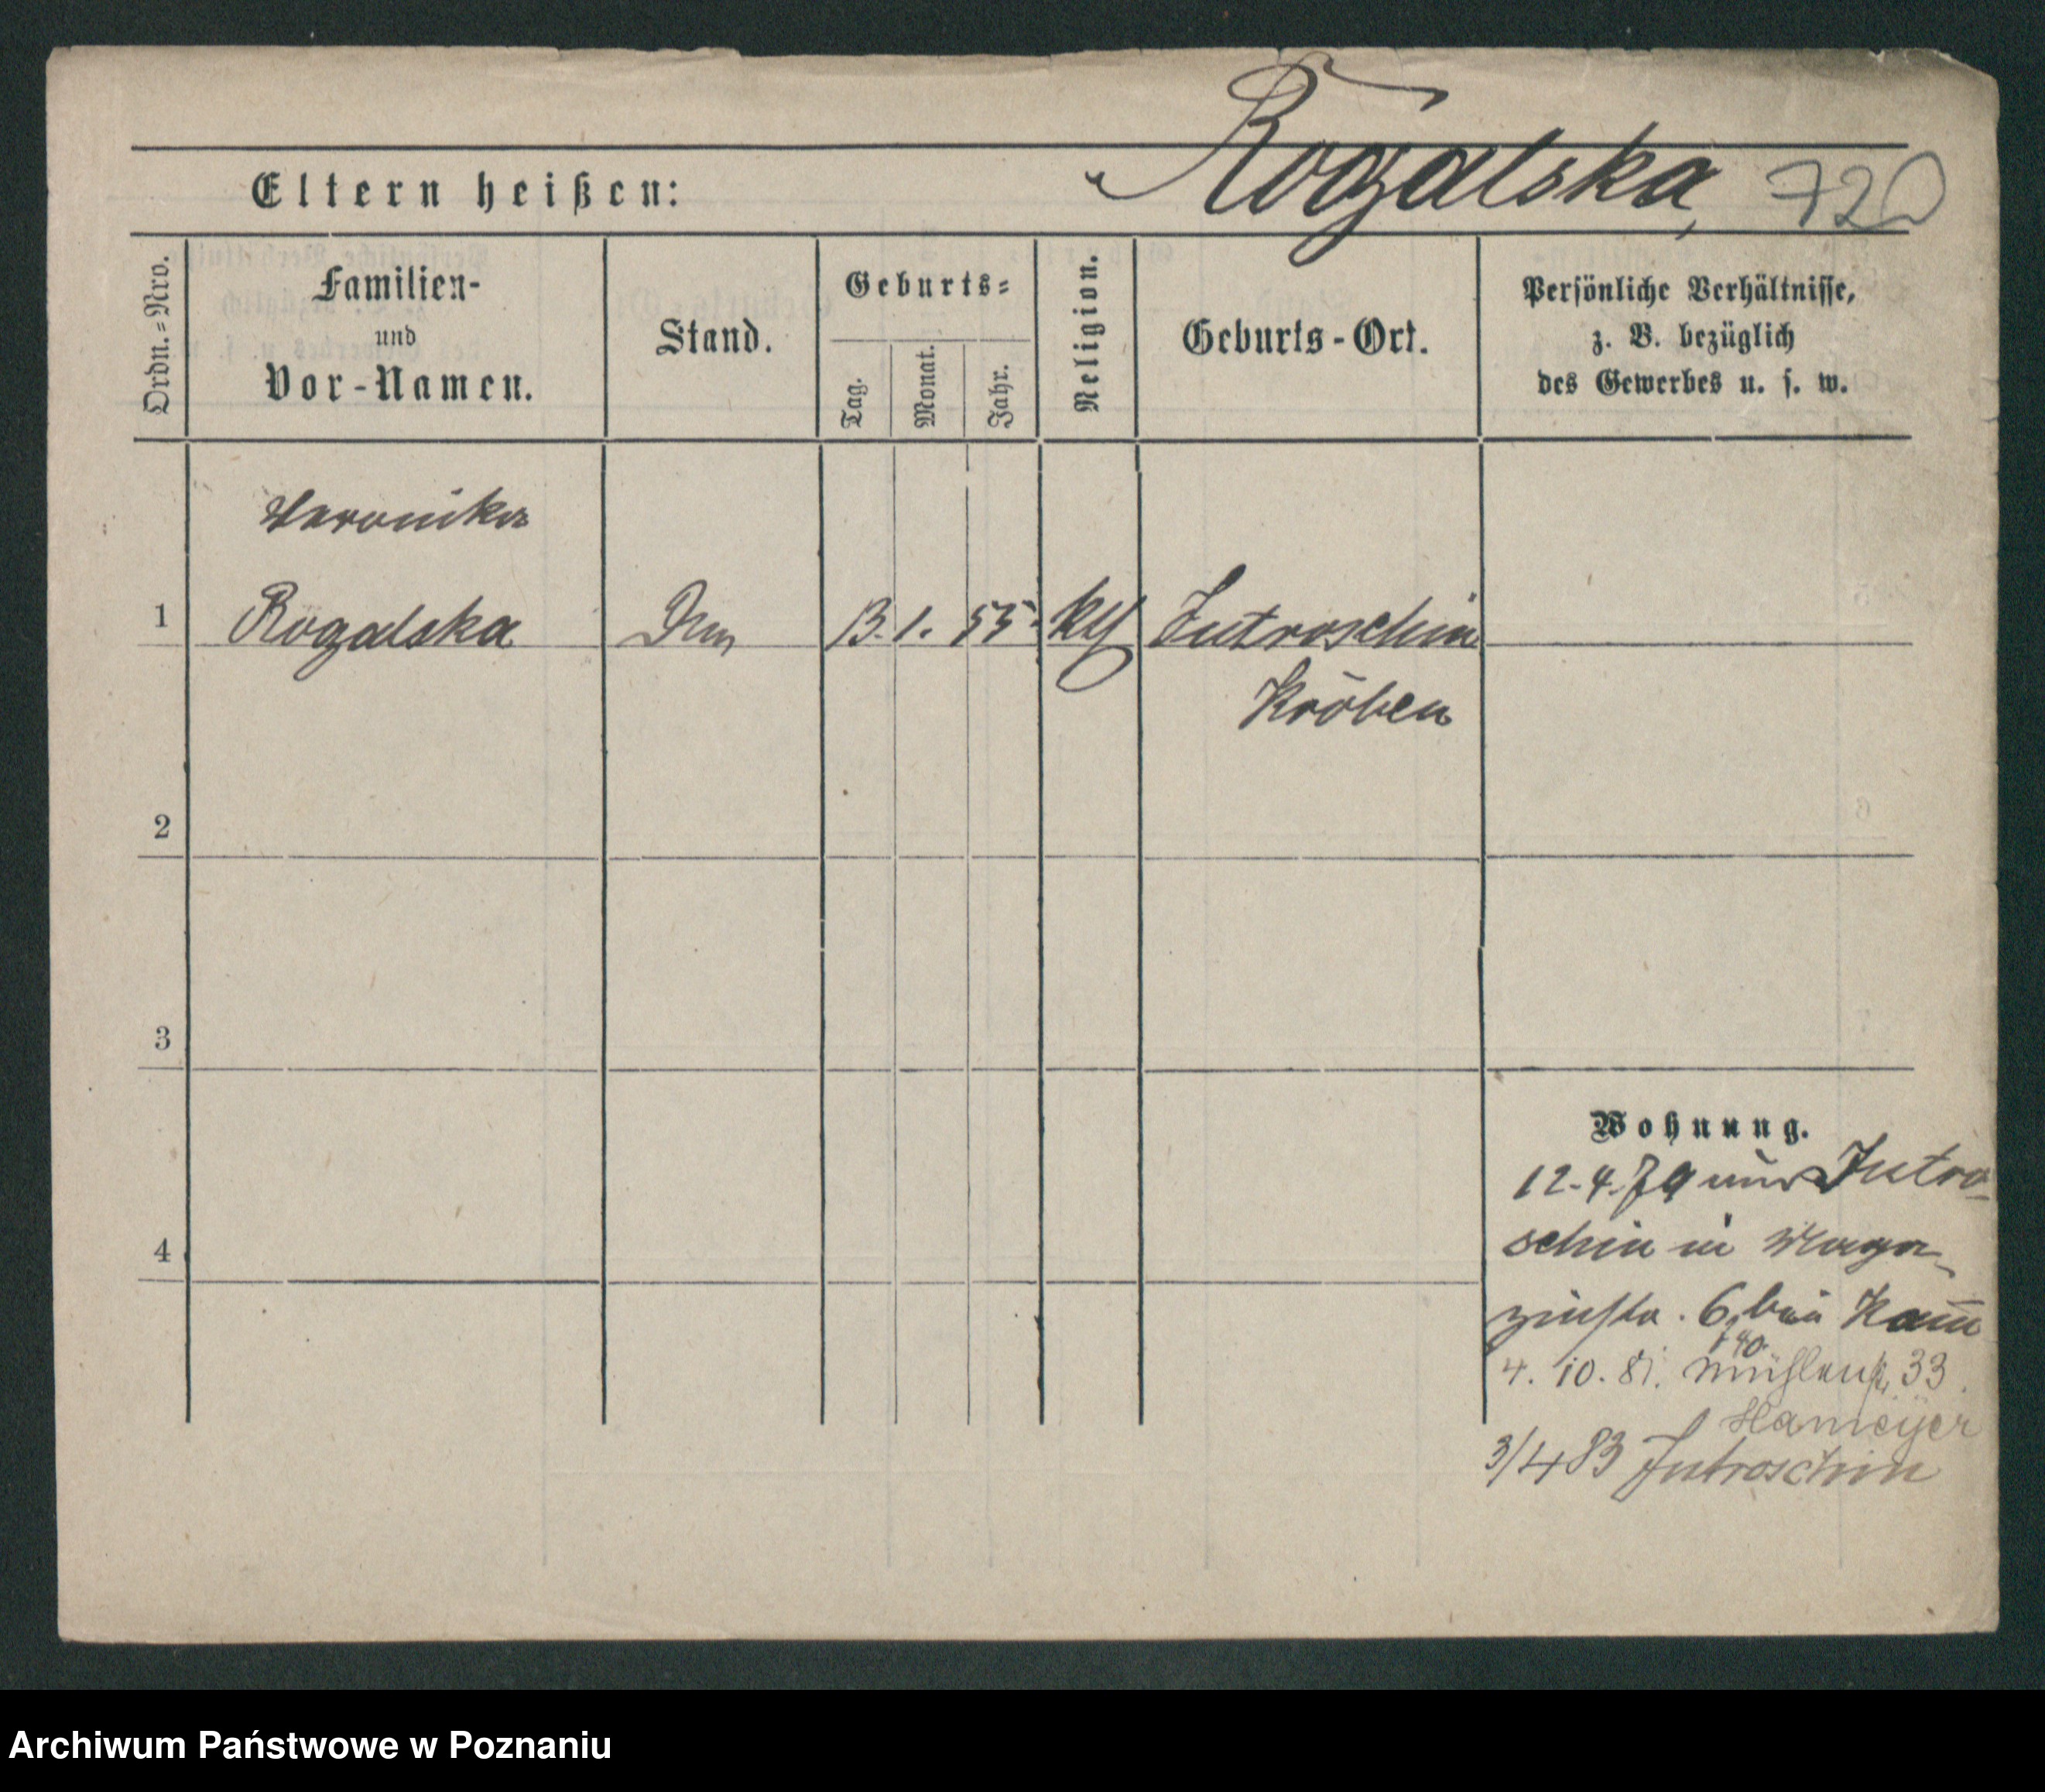 Rogalska, 720
Eltern heißen:
Ordn.=Nro.
Familien-
und
Vor-Namen.
Stand.
Geburts=
Tag.
Monat.
Jahr.
Religion.
Geburts-Ort.
Persönliche Verhältnisse,
z. B. bezüglich
des Gewerbes u. s. w.
Veronika
1 Rogalska 13. 1. 55 Jutroschin
Kröben
2
3
4
Wohnung.
12.4.79 aus Jutro-
schin in Maga-
zinstr. 6 bei
4. 10. 81. Mühlenstr. 33.
Hameyer
3/4 83 Jutroschin
Archiwum Państwowe w Poznaniu